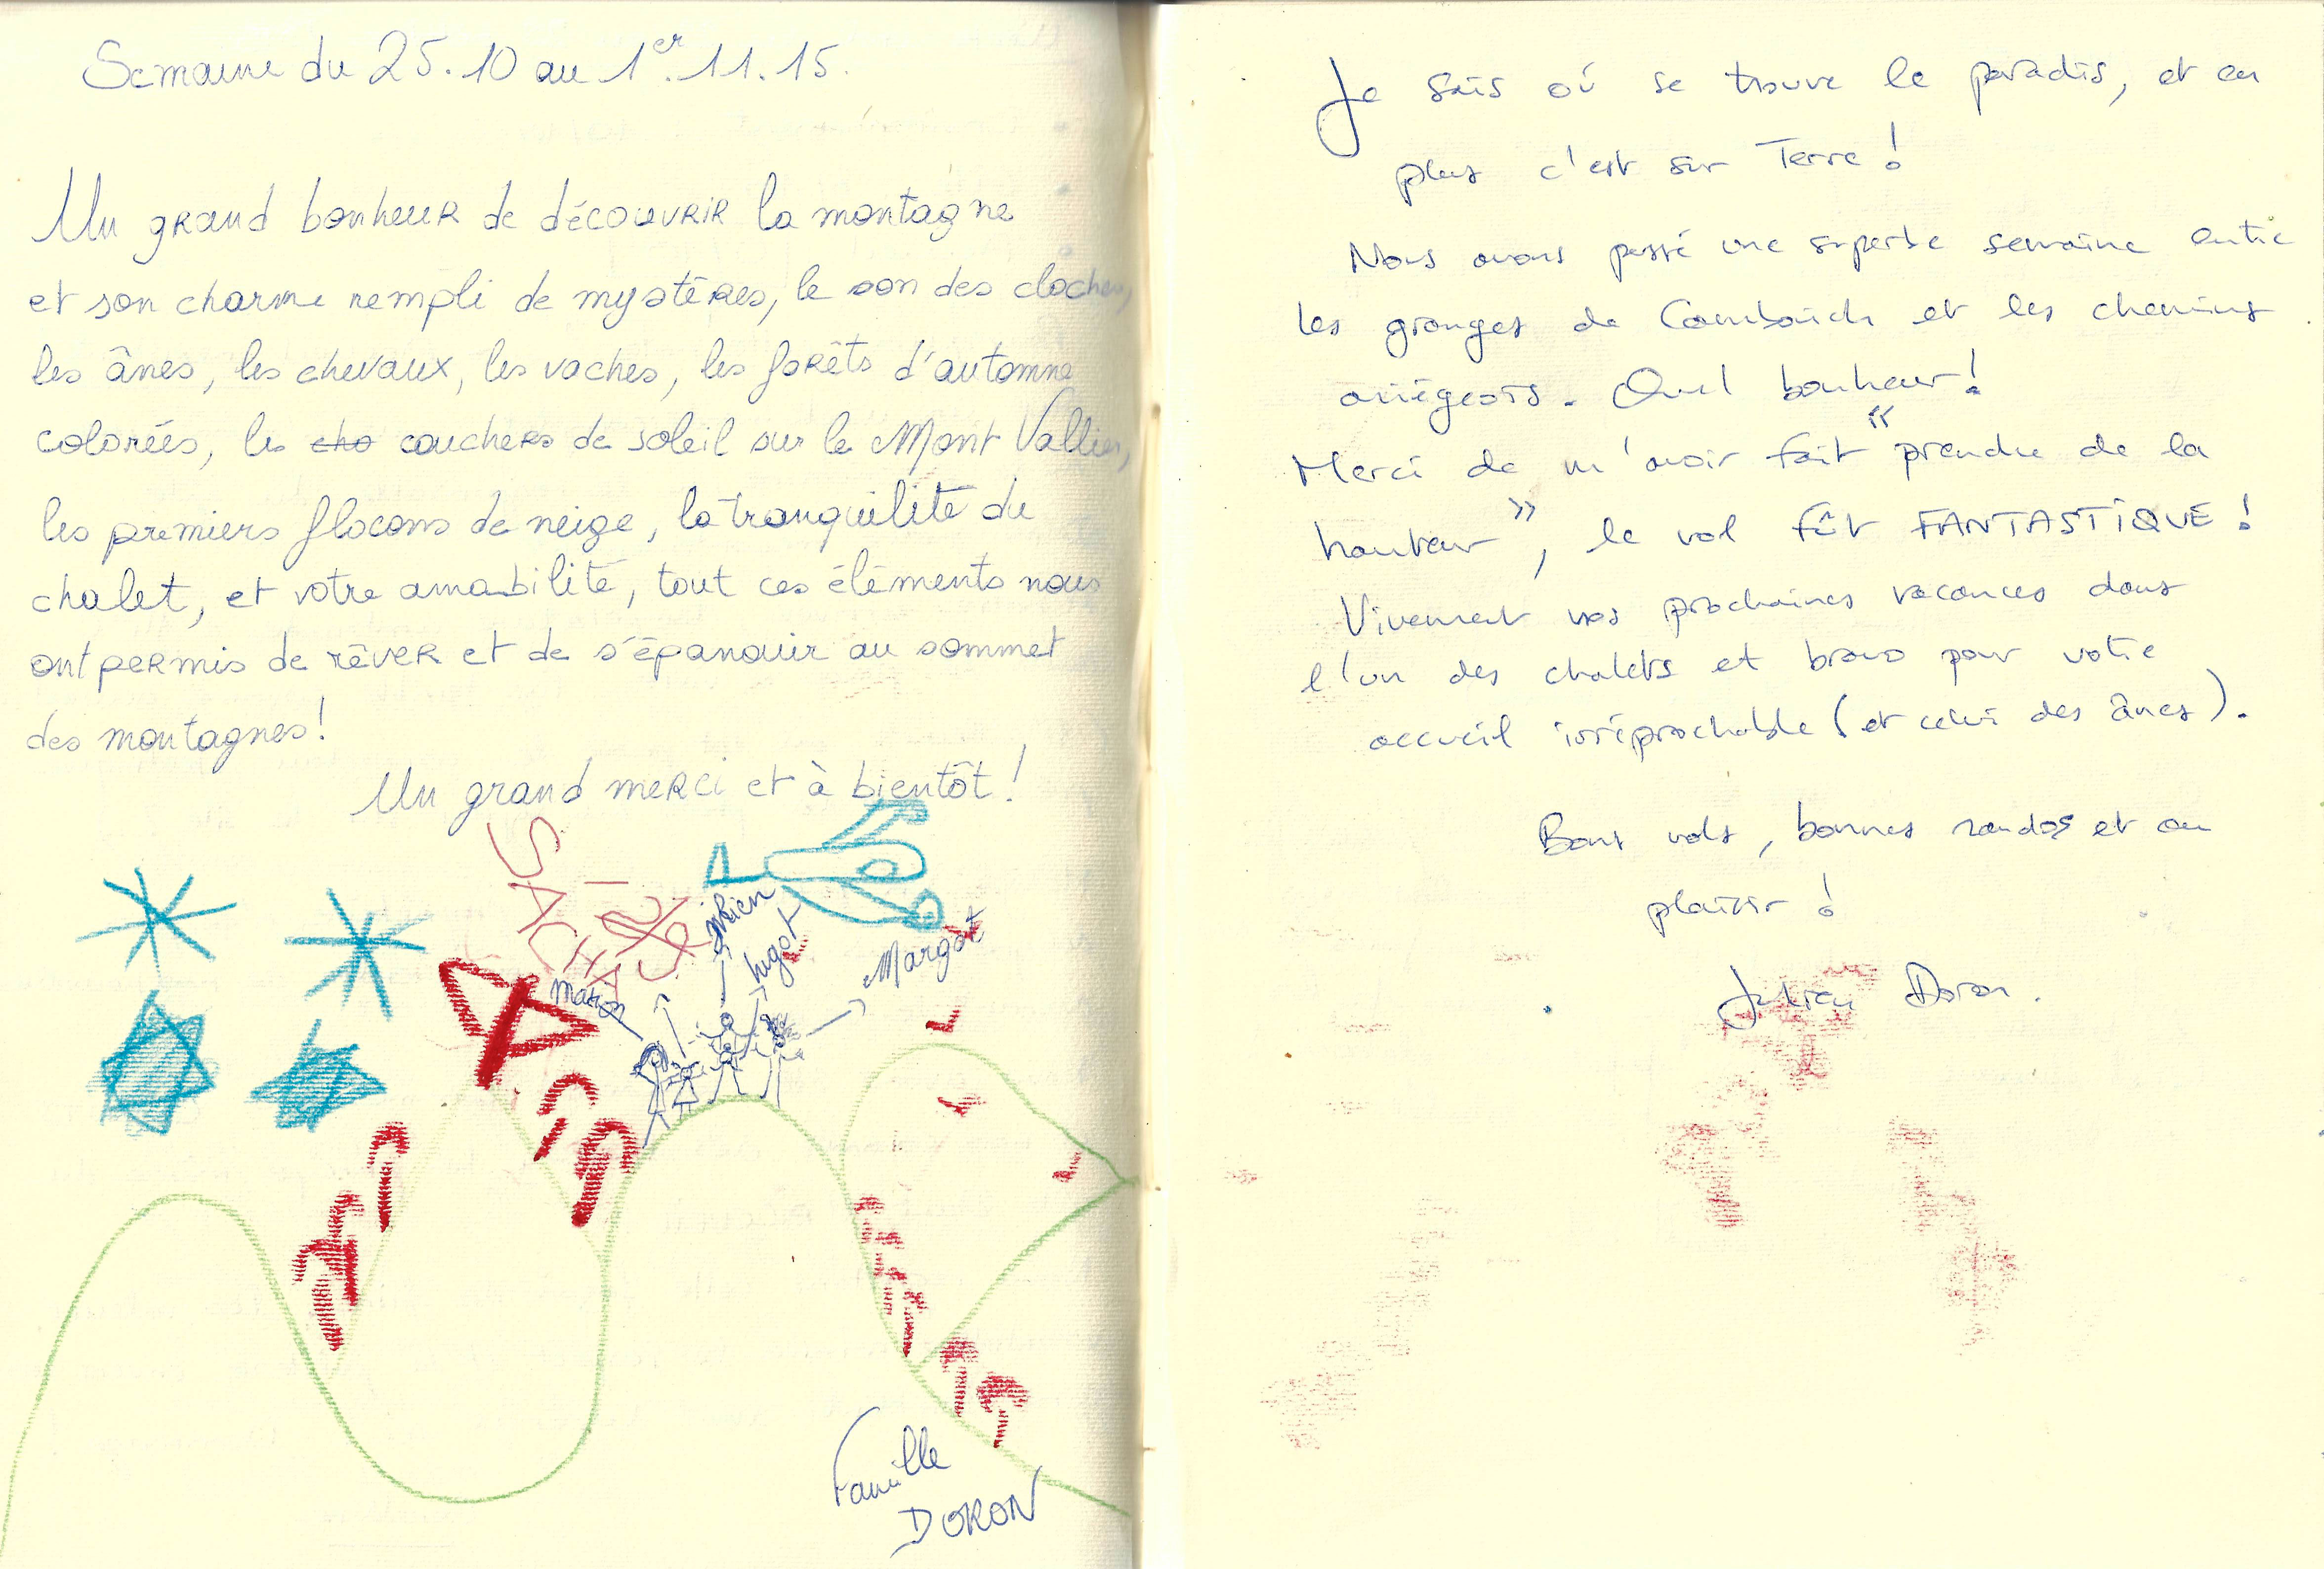 Semaine du 25.10 au 1er.11.15.
Un grand bonheur de découvrir la montagne
et son charme rempli de mystères, le son des cloches,
les ânes, les chevaux, les vaches, les forêts d'automne
colorées, les cho couchers de soleil sur le Mont Vallier,
les premiers flocons de neige, la tranquilité du
chalet, et votre amabilité, tout ces éléments nous
ont permis de rêver et de s'épanouir au sommet
des montagnes!
Un grand merci et à bientôt!
SACHA
Marion
Julien
hugot
Margot
Famille
DORON
Je sais où se trouve le paradis, et en
plus c'est sur Terre!
Nous avons passé une superbe semaine entre
les granges de Cambouich et les chemins
ariégeois. Quel bonheur!
Merci de m'avoir fait "prendre de la
hauteur", le vol fût FANTASTIQUE!
Vivement nos prochaines vacances dans
l'un des chalets et bravo pour votre
accueil irréprochable (et celui des ânes).
Bons vols, bonnes randos et au
plaisir!
Julien Doron.